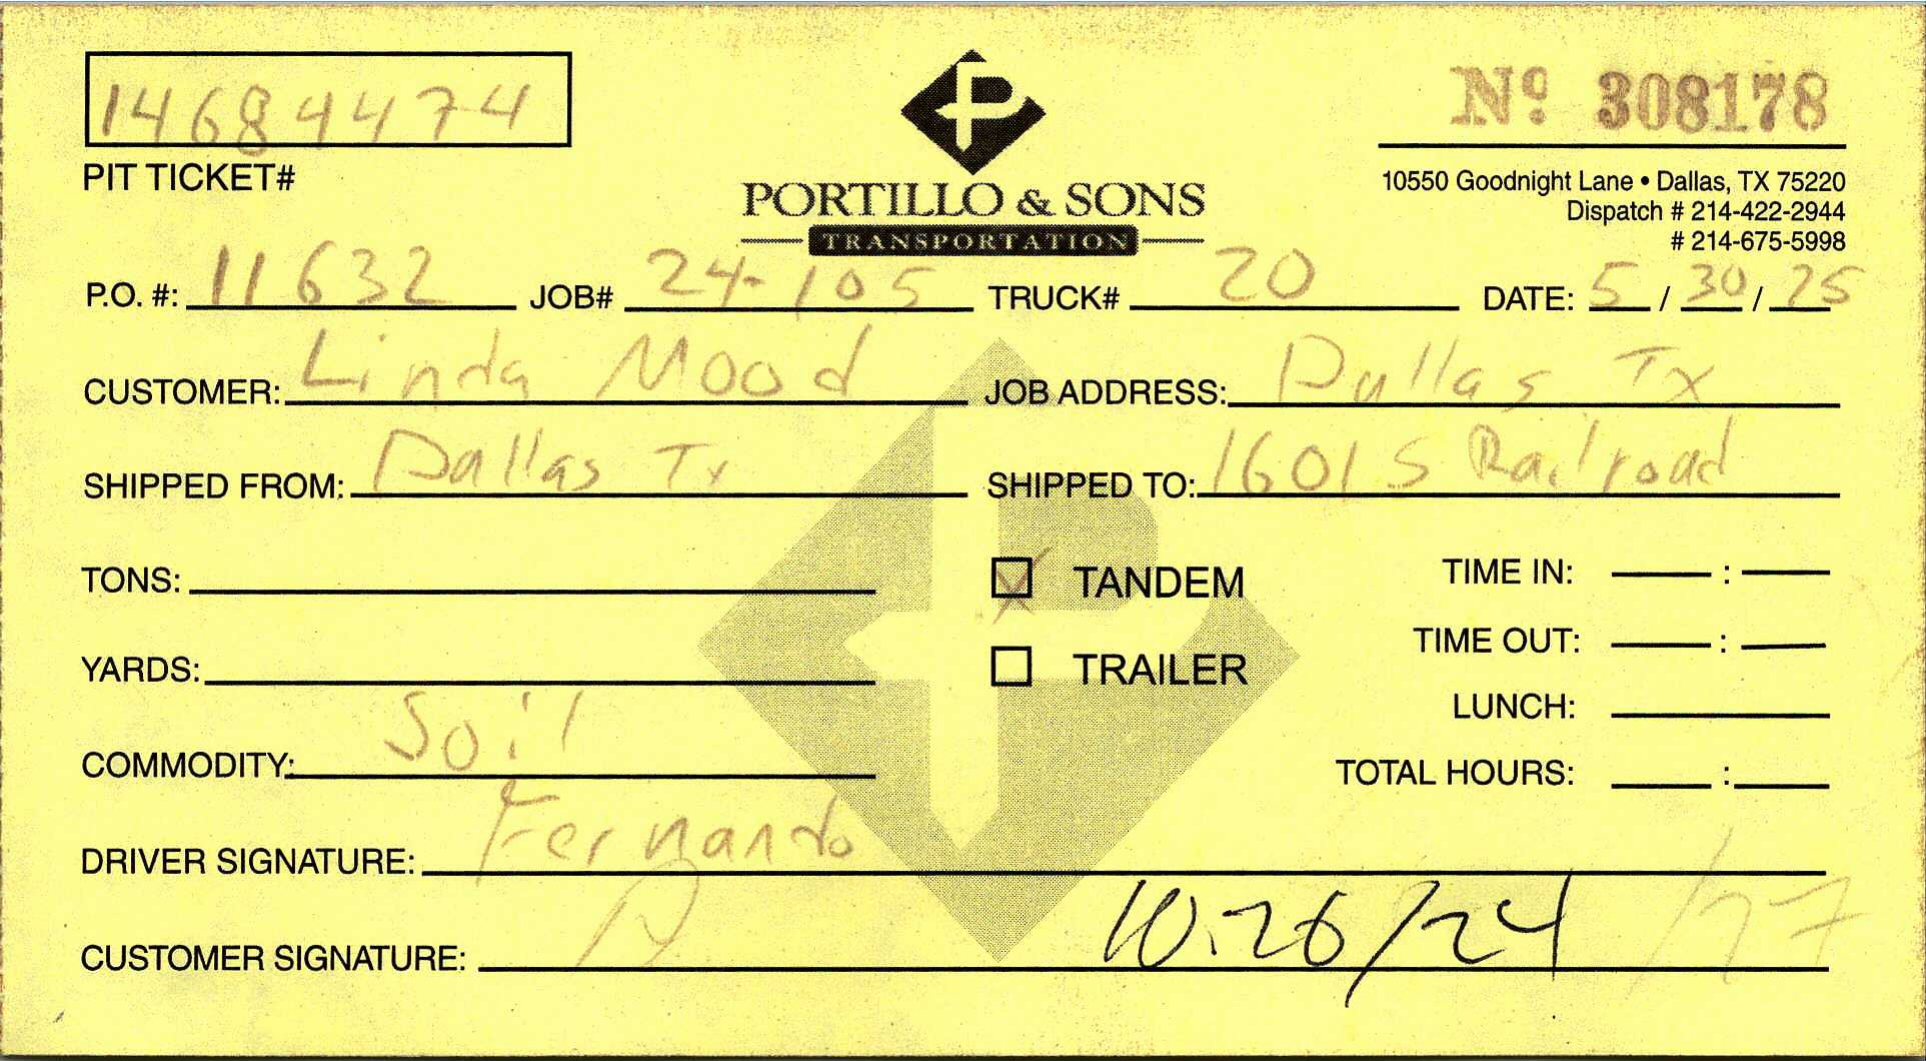 14684474
PIT TICKET#
PORTILLO & SONS
TRANSPORTATION
Nº 308178
10550 Goodnight Lane • Dallas, TX 75220
Dispatch # 214-422-2944
# 214-675-5998
P.O. #: 11632 JOB# 24-105 TRUCK# 20 DATE: 5/30/25
CUSTOMER: Linda Mood JOB ADDRESS: Dallas Tx
SHIPPED FROM: Dallas Tx SHIPPED TO: 1601 S Railroad
TONS: TANDEM TIME IN: :
YARDS: TRAILER TIME OUT: :
LUNCH:
COMMODITY: Soil TOTAL HOURS: :
DRIVER SIGNATURE: Fernando
CUSTOMER SIGNATURE: 10.26/24